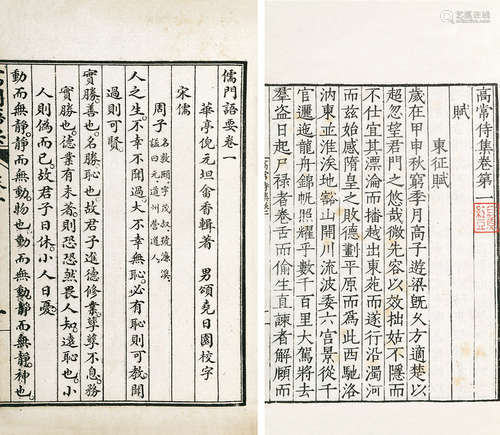 儒門語要卷一
華亭倪元坦畬香輯著 男頌堯日園校字
宋儒
周子 名敦頤字茂叔號濂溪
諡曰元道州營道人
人之生不幸不聞過大不幸無恥必有恥則可教聞
過則可賢
實勝善也名勝恥也故君子進德修業孳孳不息務
實勝也德業有未著則恐恐然畏人知遠恥也小
人則偽而已故君子日休小人日憂
動而無靜靜而無動物也動而無動靜而無靜神也
高常侍集卷第一
賦
東征賦
歲在甲申秋窮季月高子遊梁旣久方適楚以
超忽望君門之悠哉微先容以效拙姑不隱而
不仕宜其漂淪而播越出東苑而遂行沿濁河
而茲始感隋皇之敗德劃平原而為此西馳洛
汭東並淮涘地豁山開川流波委六宮景從千
官邐迤龍舟錦帆照耀乎數千百里大駕將去
羣盜日起尸祿者卷舌而偷生直諫者解頤而